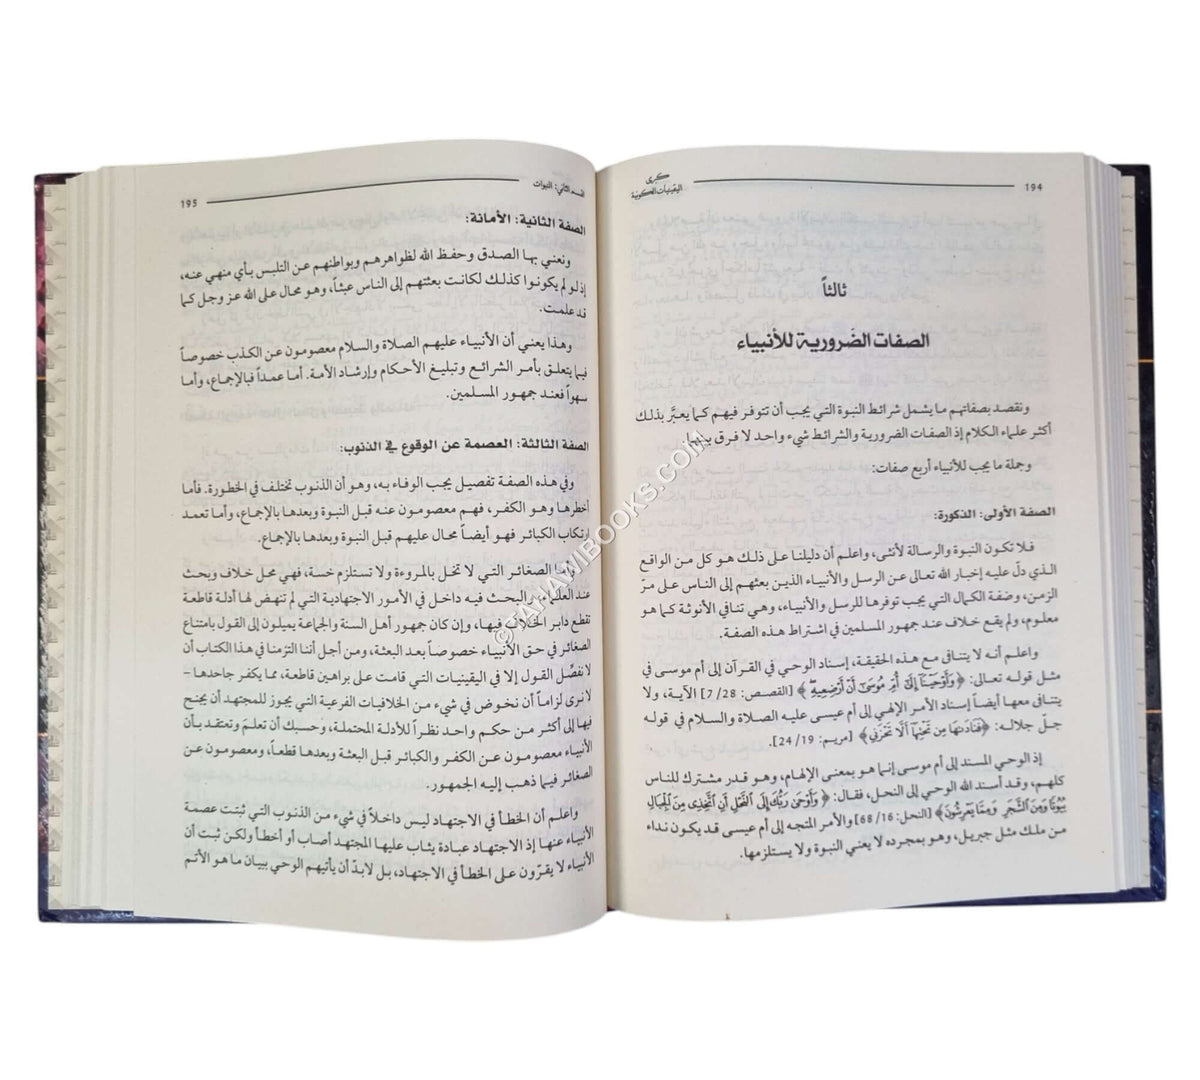 194
كبرى
اليقينيات الكونية
ثالثاً
الصفات الضَرورية للأنبياء
ونقصد بصفاتهم ما يشمل شرائط النبوة التي يجب أن تتوفر فيهم كما يعبَّر بذلك
أكثر علماء الكلام إذ الصفات الضرورية والشرائط شيء واحد لا فرق بينها.
وجملة ما يجب للأنبياء أربع صفات:
الصفة الأولى: الذكورة:
فلا تكون النبوة والرسالة لأنثى، واعلم أن دليلنا على ذلك هو كل من الواقع
الذي دلّ عليه إخبار الله تعالى عن الرسل والأنبياء الذين بعثهم إلى الناس على مرّ
الزمن، وصفة الكمال التي يجب توفرها للرسل والأنبياء، وهي تنافي الأنوثة كما هو
معلوم، ولم يقع خلاف عند جمهور المسلمين في اشتراط هذه الصفة.
واعلم أنه لا يتنافى مع هذه الحقيقة، إسناد الوحي في القرآن إلى أم موسى في
مثل قوله تعالى: ﴿وَأَوْحَيْنَا إِلَىٰ أُمِّ مُوسَىٰ أَنْ أَرْضِعِيهِ﴾ [القصص: 28/ 7] الآية، ولا
يتنافى معها أيضاً إسناد الأمر الإلهي إلى أم عيسى عليه الصلاة والسلام في قوله
جلّ جلاله: ﴿فَنَادَاهَا مِن تَحْتِهَا أَلَّا تَحْزَنِي﴾ [مريم: 19/ 24].
إذ الوحي المسند إلى أم موسى إنما هو بمعنى الإلهام، وهو قدر مشترك للناس
كلهم، وقد أسند الله الوحي إلى النحل، فقال: ﴿وَأَوْحَىٰ رَبُّكَ إِلَى النَّحْلِ أَنِ اتَّخِذِي مِنَ الْجِبَالِ
بُيُوتًا وَمِنَ الشَّجَرِ وَمِمَّا يَعْرِشُونَ﴾ [النحل: 16/ 68] والأمر المتجه إلى أم عيسى قد يكون نداء
من ملك مثل جبريل، وهو بمجرده لا يعني النبوة ولا يستلزمها.
القسم الثاني: النبوات
195
الصفة الثانية: الأمانة:
ونعني بها الصدق وحفظ الله لظواهرهم وبواطنهم عن التلبس بأي منهي عنه،
إذ لو لم يكونوا كذلك لكانت بعثتهم إلى الناس عبثاً، وهو محال على الله عز وجل كما
قد علمت.
وهذا يعني أن الأنبياء عليهم الصلاة والسلام معصومون عن الكذب خصوصاً
فيما يتعلق بأمر الشرائع وتبليغ الأحكام وإرشاد الأمة. أما عمداً فبالإجماع، وأما
سهواً فعند جمهور المسلمين.
الصفة الثالثة: العصمة عن الوقوع في الذنوب:
وفي هذه الصفة تفصيل يجب الوفاء به، وهو أن الذنوب تختلف في الخطورة. فأما
أخطرها وهو الكفر، فهم معصومون عنه قبل النبوة وبعدها بالإجماع، وأما تعمد
ارتكاب الكبائر فهو أيضاً محال عليهم قبل النبوة وبعدها بالإجماع.
وأما الصغائر التي لا تخل بالمروءة ولا تستلزم خسة، فهي محل خلاف وبحث
عند العلماء، والبحث فيه داخل في الأمور الاجتهادية التي لم تنهض لها أدلة قاطعة
تقطع دابر الخلاف فيها، وإن كان جمهور أهل السنة والجماعة يميلون إلى القول بامتناع
الصغائر في حق الأنبياء خصوصاً بعد البعثة، ومن أجل أننا التزمنا في هذا الكتاب أن
لا نفصِّل القول إلا في اليقينيات التي قامت على براهين قاطعة، مما يكفر جاحدها-
لا نرى لزاماً أن نخوض في شيء من الخلافيات الفرعية التي يجوز للمجتهد أن يجنح
فيها إلى أكثر من حكم واحد نظراً للأدلة المحتملة، وحسبك أن تعلم وتعتقد بأن
الأنبياء معصومون عن الكفر والكبائر قبل البعثة وبعدها قطعاً، ومعصومون عن
الصغائر فيما ذهب إليه الجمهور.
واعلم أن الخطأ في الاجتهاد ليس داخلاً في شيء من الذنوب التي ثبتت عصمة
الأنبياء عنها إذ الاجتهاد عبادة يثاب عليها المجتهد أصاب أو أخطأ ولكن ثبت أن
الأنبياء لا يقرّون على الخطأ في الاجتهاد، بل لابدّ أن يأتيهم الوحي ببيان ما هو الأتم
©TAHAWIBOOKS.COM